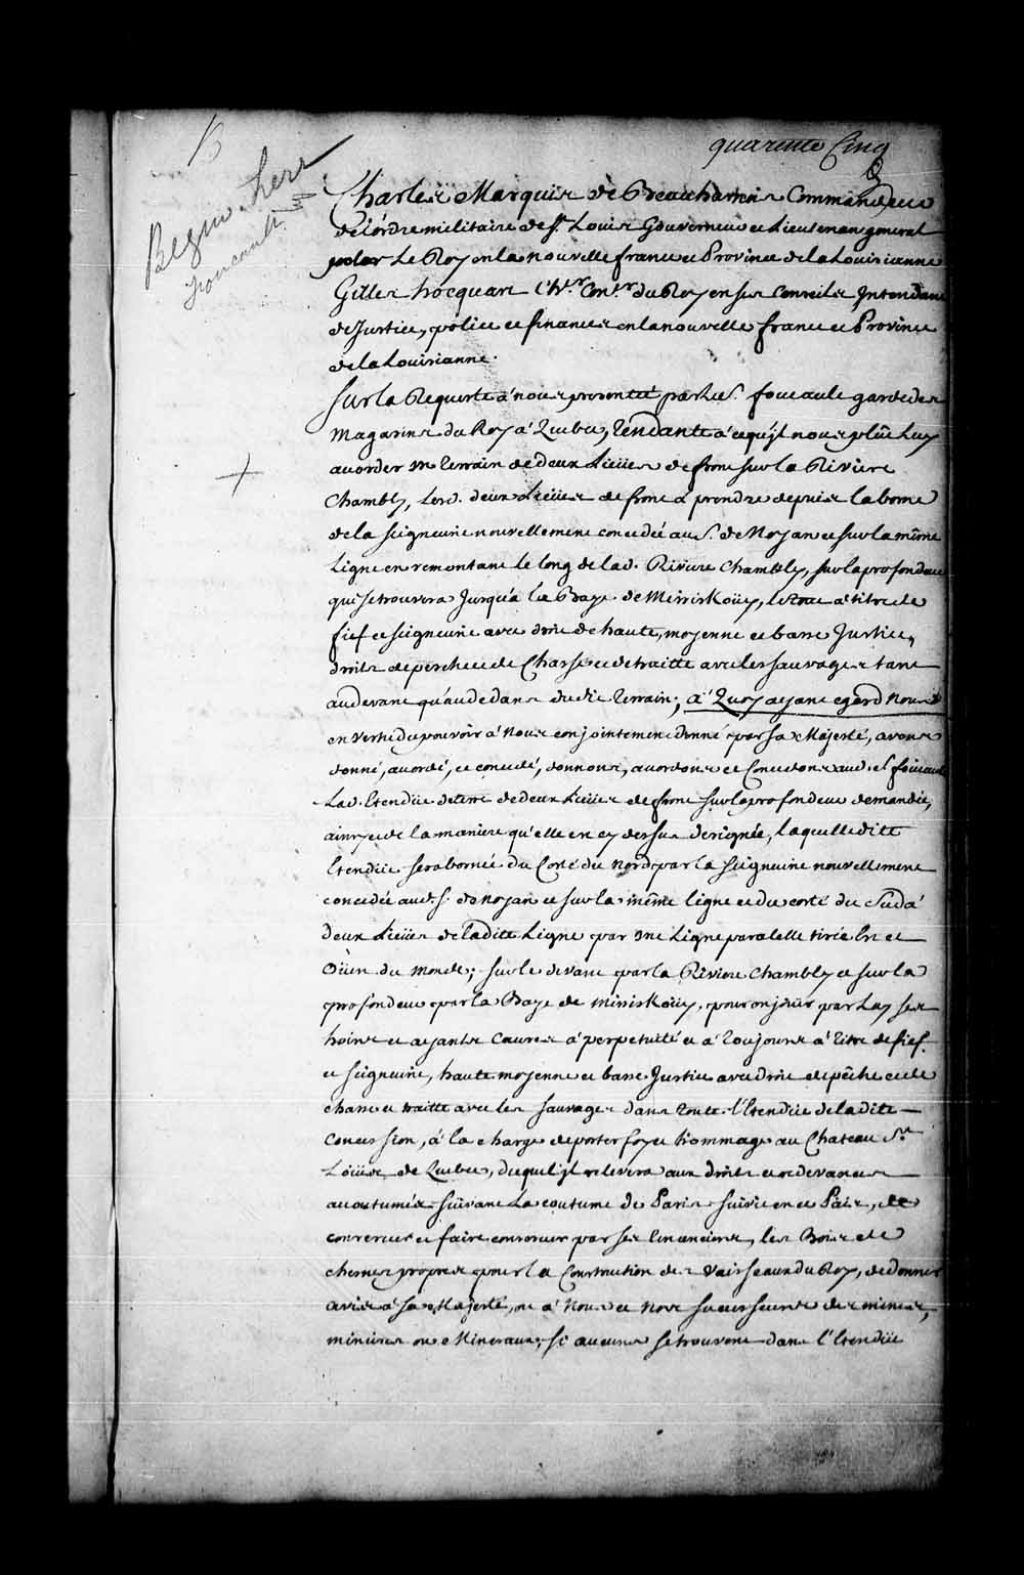 quarente Cinq
Foucault
Charles Marquis de Beauharnois Commandeur
de L'ordre militaire de St. Louis Gouverneur et Lieutenant general
pour Le Roy en la nouvelle france et Province de la Louisianne
Gilles hocquart Chr. Conr. du Roy en ses Conseils Intendant
de Justice, police et finances en la nouvelle france et Province
de la Louisianne.
Sur la Requeste à nous presentée par Le S. foucault garde des
Magasins du Roy à Quebec, Tendante à ce qu'jl nous plût Luy
accorder un terrain de deux Lieües de front sur la Riviere
Chambly, Lesd. deux Lieües de front à prendre depuis la borne
de la seigneurie nouvellement concedée au S. de Noyan et sur la même
Ligne en remontant le long de lad. Riviere Chambly, sur la profondeur
qui se trouvera Jusqu'à la Baye de Missiskoüy, le tout à titre de
fief et seigneurie avec droit de haute, moyenne et basse Justice,
droits de pesche et de Chasse et de traitte avec les sauvages tant
au devant qu'au dedans du dit terrain; à Quoy ayant egard Nous
en vertu du pouvoir à Nous conjointement donné par sa Majesté, avons
donné, accordé, et concedé, donnons, accordons et Concedons aud. S. foucault
Lad. Etendüe de terre de deux Lieües de front sur la profondeur demandée,
ainsy et de la maniere qu'elle est cy dessus designée, laquelle ditte
Etendüe sera bornée du Costé du Nord par la seigneurie nouvellement
concedée aud. S. de Noyan et sur la même ligne et du costé du Sud à
deux Lieües de la ditte Ligne par une Ligne paralelle tirée Est et
Oüest du Monde; sur le devant par la Riviere Chambly et sur la
profondeur par la Baye de Missiskoüy, pour en joüir par Luy ses
hoirs et ayants Causes à perpetuité et à Toujours à Titre de fief
et seigneurie, haute moyenne et basse Justice avec droit de pêche et de
chasse et traitte avec les sauvages dans Toute l'Etendüe de la ditte
Concession, à la charge de porter foy et hommage au Chateau St.
Loüis de Quebec, duquel jl relevera aux droits et redevances
accoutumés suivant La coutume de Paris suivie en ce Païs, de
conserver et faire conserver par ses tenanciers, les Bois de
chesnes propres pour la Construction des Vaisseaux du Roy, de donner
avis à sa Majesté, ou à Nous et Nos successeurs des mines,
minieres ou Mineraux, si aucuns se trouvent dans l'Etendüe